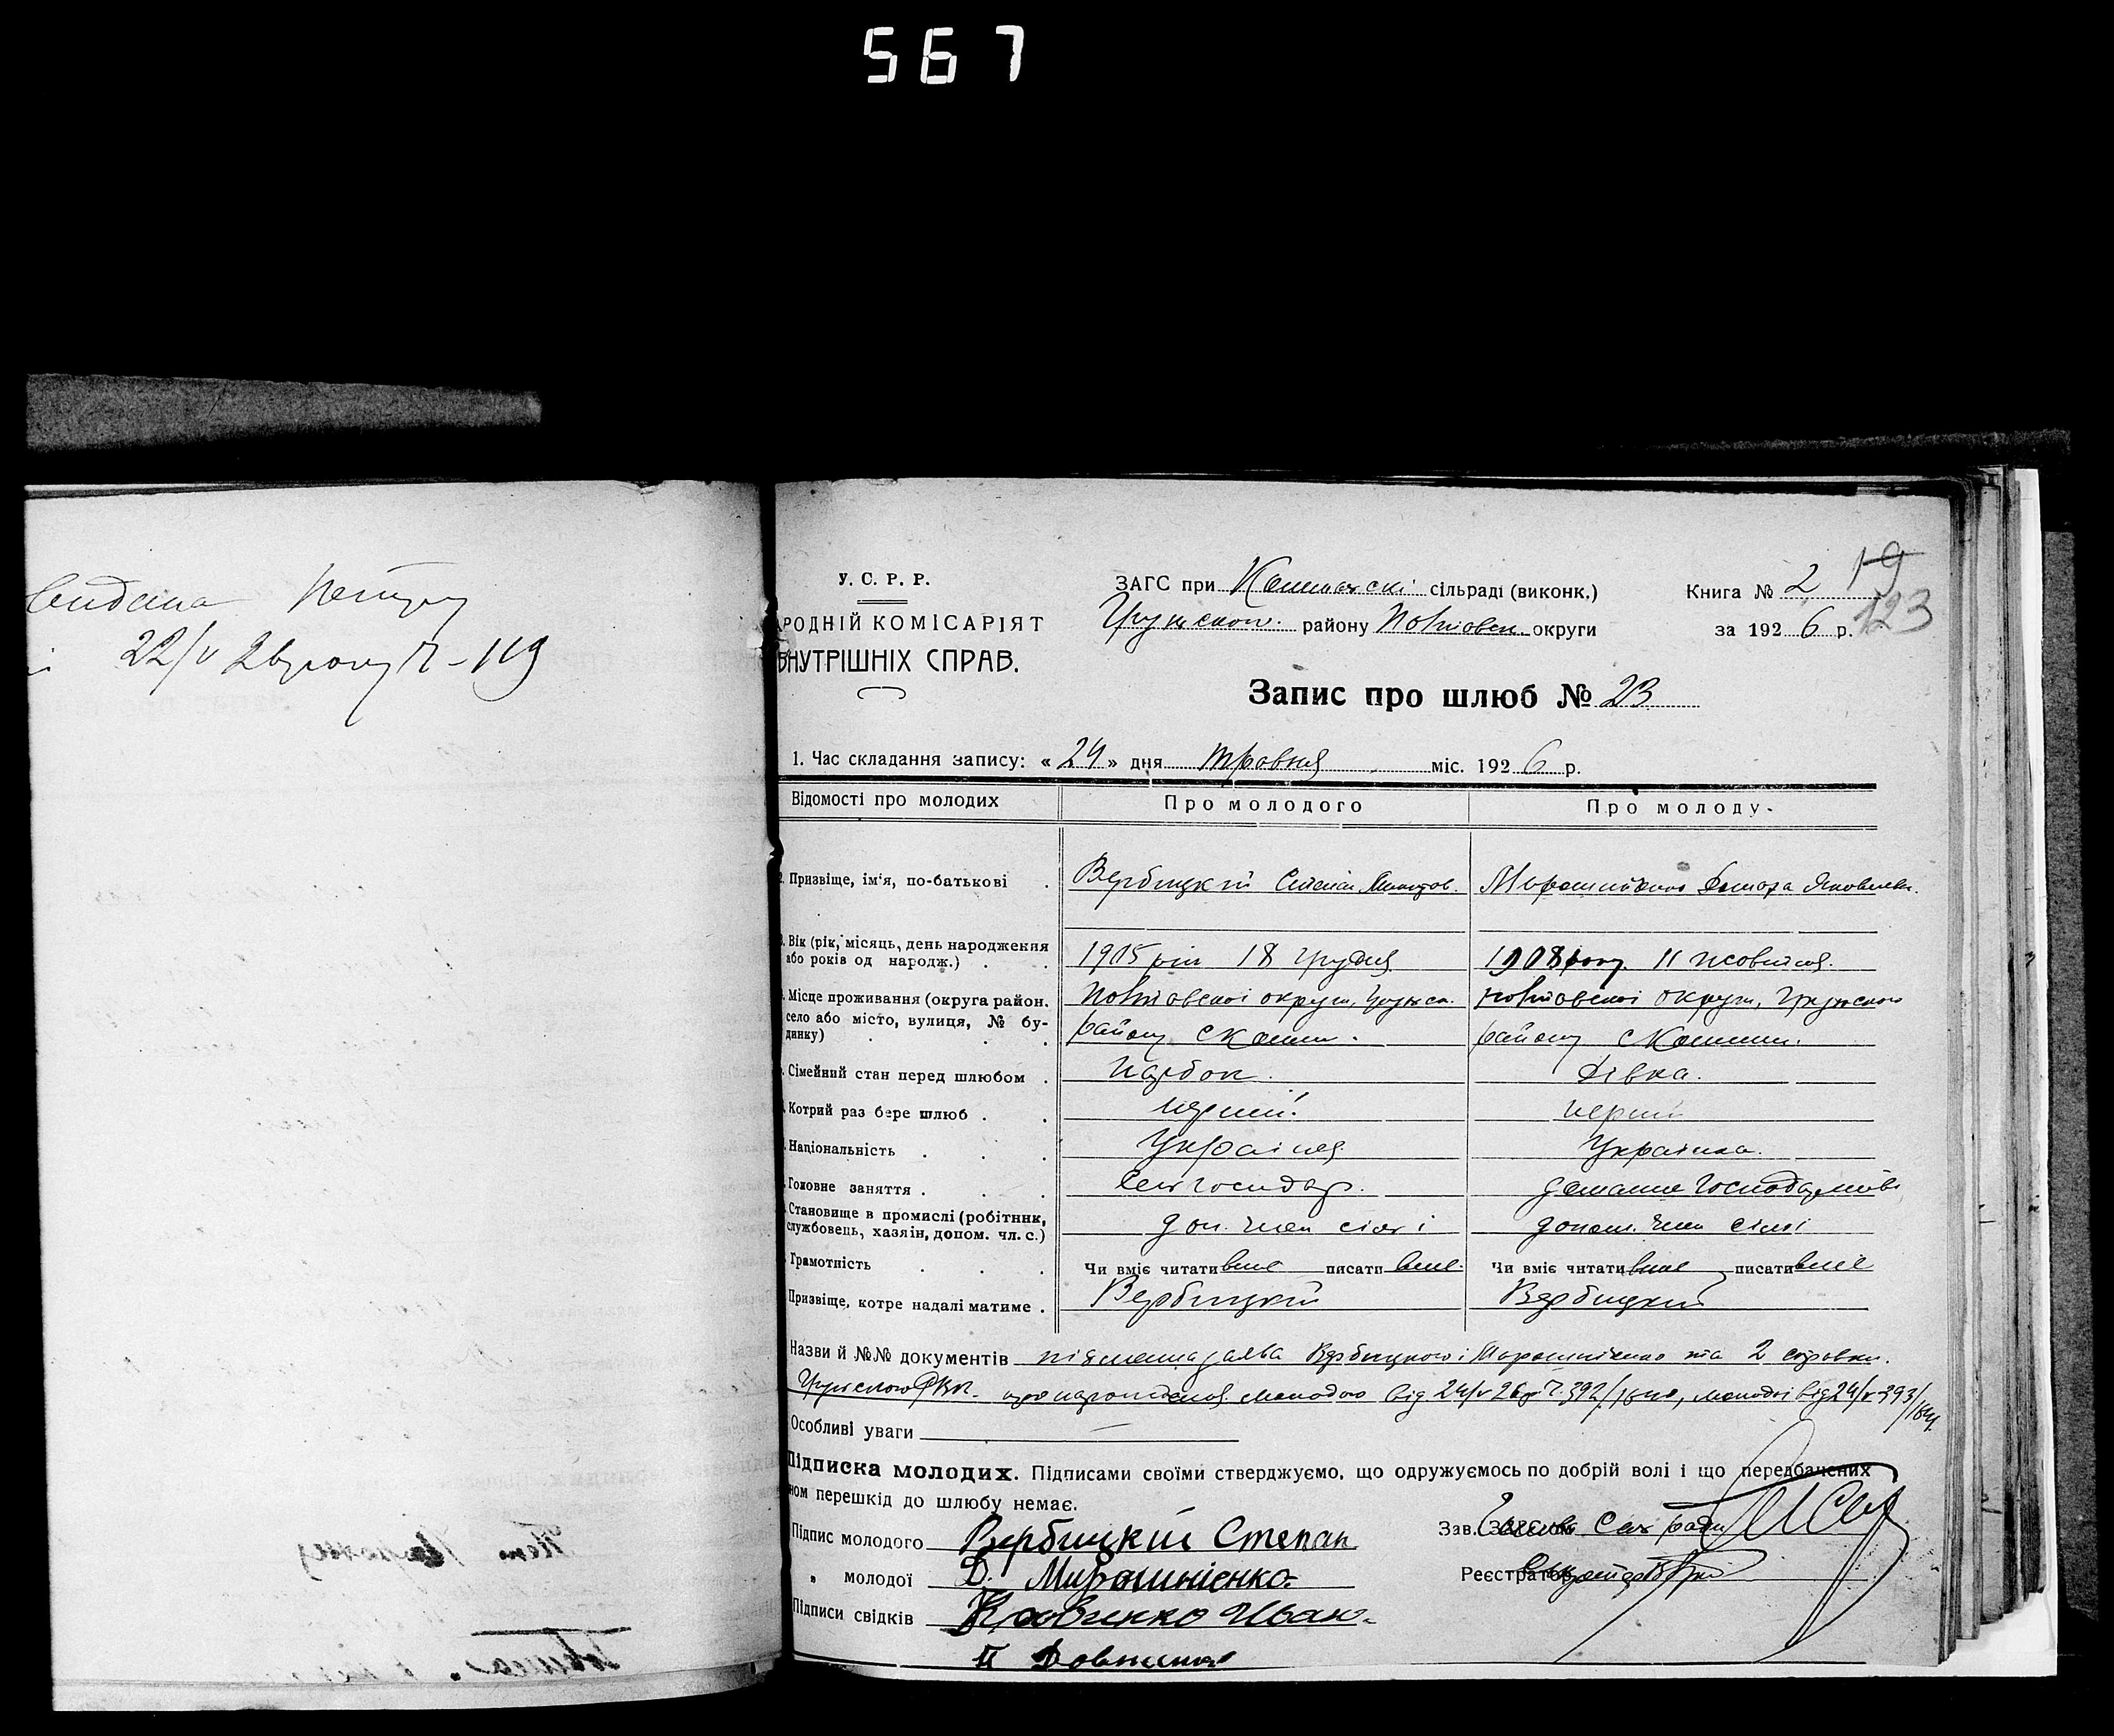 567
видана
22/V 26 року Ч-119
У. С. Р. Р.
РОДНІЙ КОМІСАРІЯТ
ВНУТРІШНІХ СПРАВ.
ЗАГС при сільраді (виконк.)
району Полтавськ. округи
Книга № 2 19
за 1926 р. 123
Запис про шлюб № 23
1. Час складання запису: « 24 » дня травня міс. 1926 р.
Відомості про молодих
Про молодого
Про молоду.
Призвіще, ім'я, по-батькові
Вербицкій Степан
Мирошніченко Яковлевн.
Вік (рік, місяць, день народження
або років од народж.)
1905 рік 18 грудня
1908 року 11 жовтня.
Місце проживання (округа район.
село або місто, вулиця, № бу-
динку)
Полтавської округи,
району с
Полтавської округи,
району с
Сімейний стан перед шлюбом
Парбок.
Дівка.
Котрий раз бере шлюб
перший.
перший
Національність
Українец
Українка.
Головне заняття
Сел господар.
домашне господарство
Становище в промислі (робітник,
службовець, хазяін, допом. чл. с.)
доп. член сімї
допом. член сімї
Грамотність
Чи вміє читати вміє писати вміє
Чи вміє читати вміє писати вміє
Призвіще, котре надалі матиме
Вербицкій
Вербицкий
Назви й №№ документів підписна заява Вербицкого і Мирошніченко та 2 справки.
про народження молодого від 24/V 26 р Ч. 392/, молодої від 24/V 393/
Особливі уваги
Підписка молодих. Підписами своїми стверджуємо, що одружуємось по добрій волі і що передбачених
ном перешкід до шлюбу немає.
Підпис молодого Вербицкій Степан
" молодої Д. Мирошнієнко
Підписи свідків Кравченко Иван
Зав. ЗАГС'ом Голова Сіл ради
Реєстратор